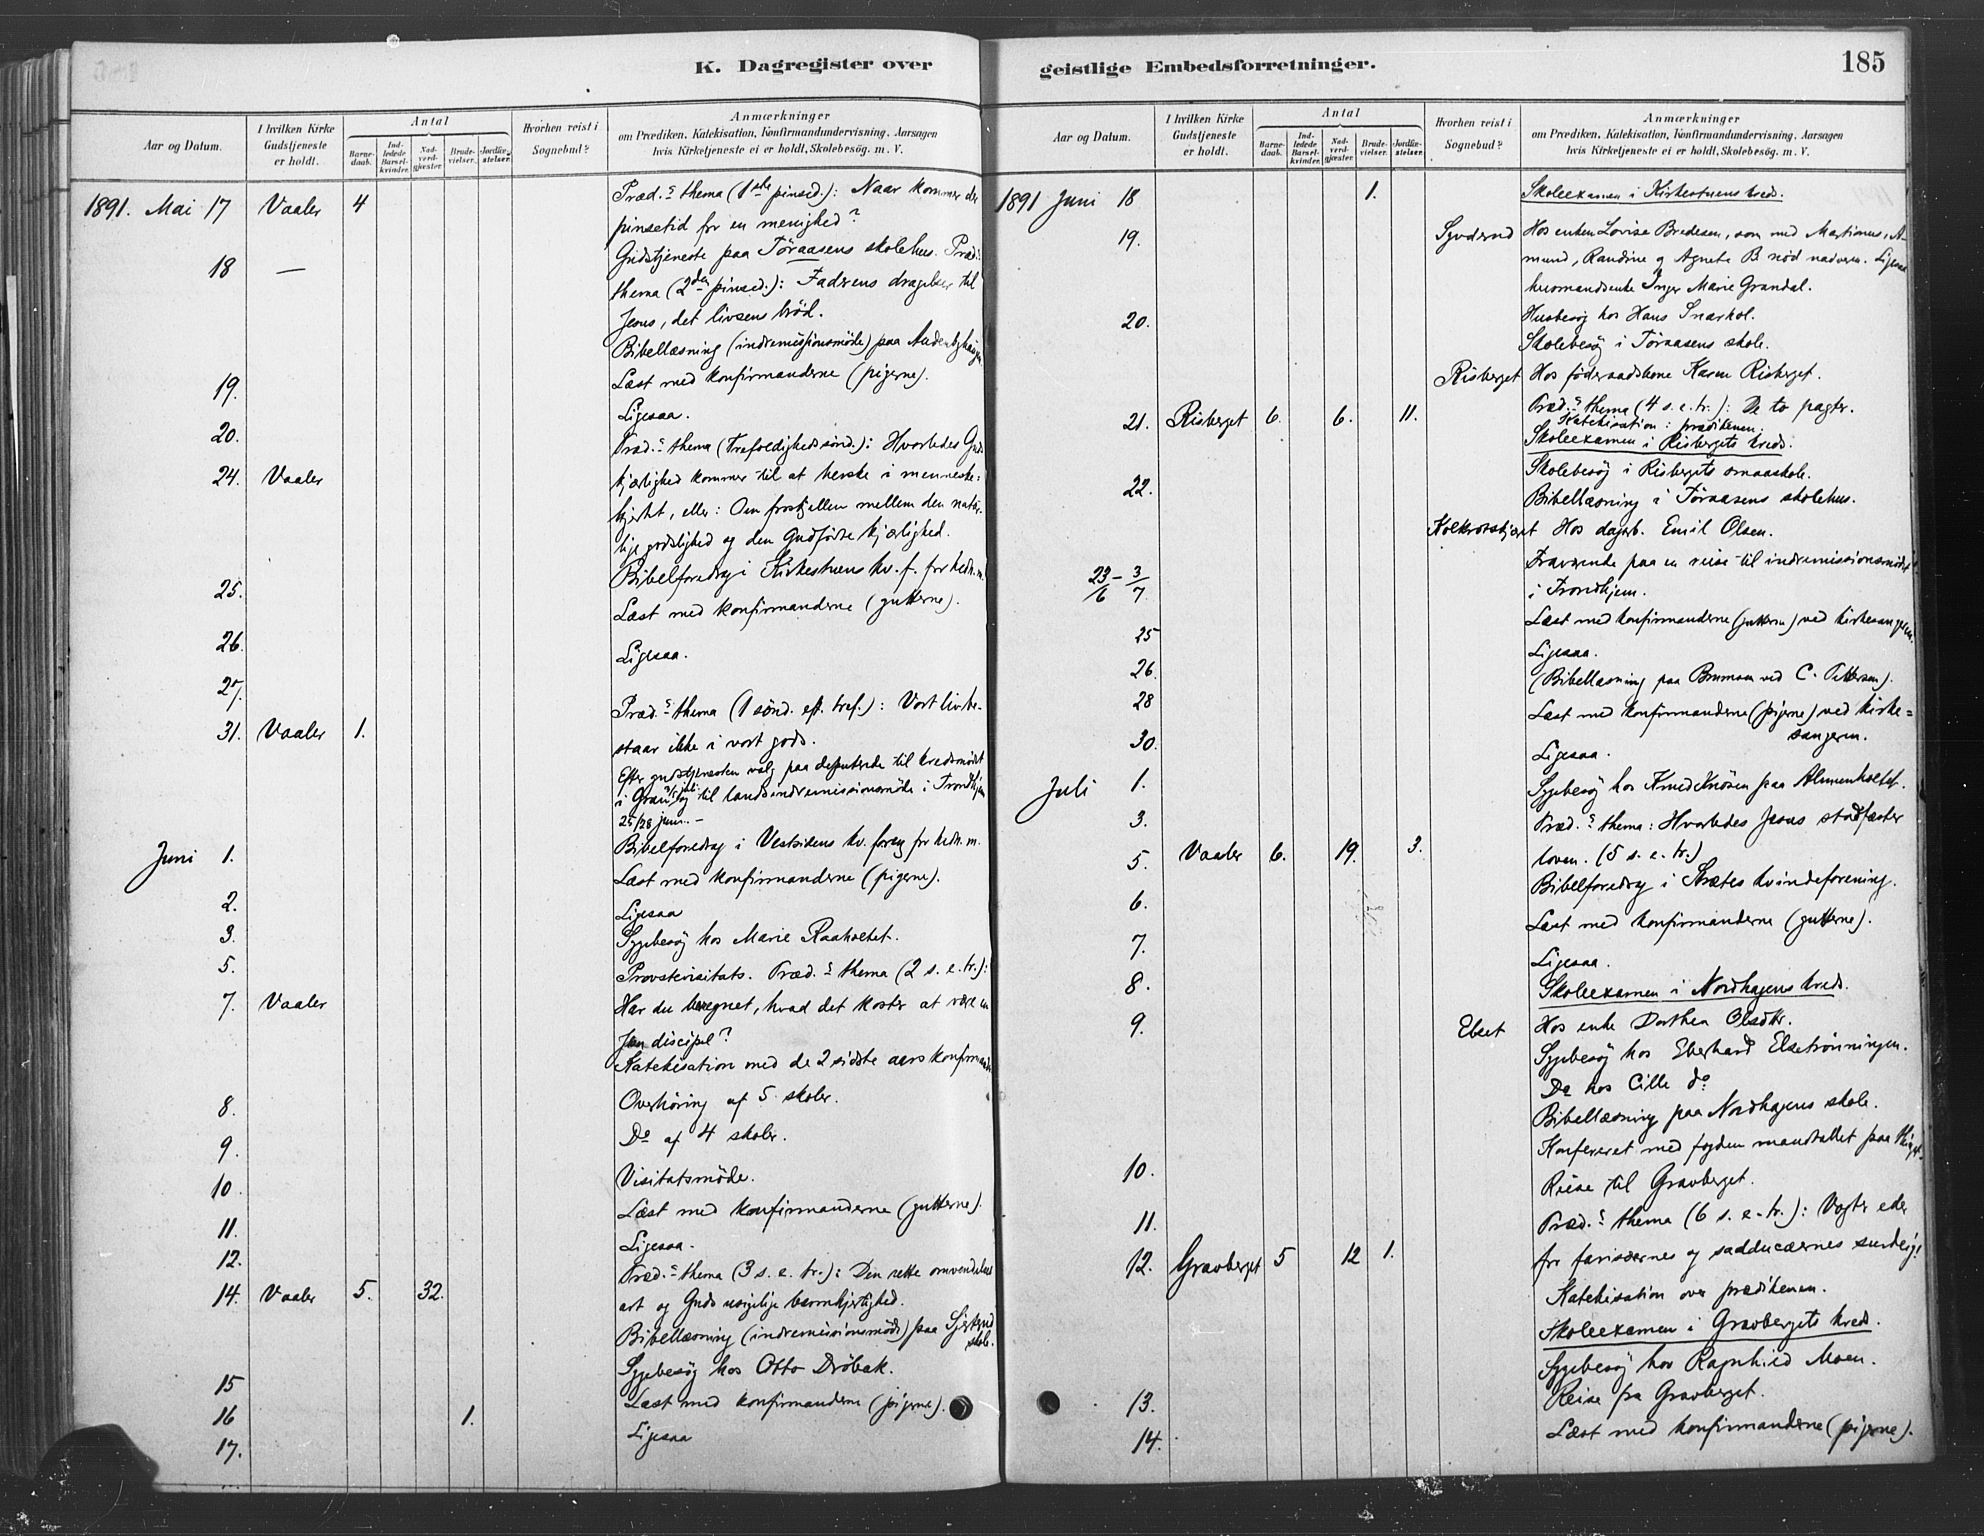 K. Dagregister over
Aar og Datum.
I hvilken Kirke Gudstjeneste er holdt.
Antal
Barnedaab.
Indledede Barselkvinder.
Nadverdgjæster.
Brudevielser.
Jordfæstelser.
Hvorhen reist i Sognebud?
Anmærkninger
om Prædiken, Katekisation, Konfirmandundervisning, Aarsagen
hvis Kirketjeneste ei er holdt, Skolebesøg. m. V.
1891. Mai 17 Vaaler 4 Præd.s thema (1ste pinsed.): Naar kommer der
pinsetid for en menighed?
18 — Gudstjeneste paa Töraasens skolehus. Præd.s
thema (2den pinsed.): Fadrens dragelser til
Jesus, det livsens bröd.
Bibellæsning (indremissionsmöde) paa
19. Læst med konfirmanderne (pigerne).
20. Ligesaa.
24. Vaaler Præd.s thema (Trefoldighedssönd.): Hvorledes Guds
kjærlighed kommer til at herske i menneske-
hjertet, eller: Om forskjellen mellem den natur-
lige godslighed og den Gudfödte kjærlighed.
Bibelforedrag i Kirkestuens kv. f. for hedn. m.
25. Læst med konfirmanderne (gutterne).
26. Ligesaa.
27.
31. Vaaler 1. Præd.s thema (1 sönd. eft. tref.): Vort liv be-
staar ikke i vort gods.
Efter gudstjenesten valg paa deputerede til kredsmödet
i Gran og til landsindremissionsmöde i Trondhjem
25/28 juni. —
Juni 1. Bibelforedrag i Vestsidens kv. foreng for hedn. m.
2. Læst med konfirmanderne (pigerne).
3. Ligesaa
5. Sygebesög hos Marie Raaholtet.
7. Vaaler Provstevisitats. Præd.s thema (2 s. e. tr.):
Har du beregnet, hvad det koster at være en
Jesu discipel?
Katekisation med de 2 sidste aars konfirmander
8. Overhöring af 5 skoler.
9. Do af 4 skoler.
10. Visitatsmöde.
11. Læst med konfirmanderne (gutterne).
12. Ligesaa.
14. Vaaler 5. 32. Præd.s thema (3 s. e. tr.): Den rette omvendelses
art og Guds usigelige barmhjertighed.
Bibellæsning (indremissionsmöde) paa
skole.
15 Sygebesög hos Otto Dröbak.
16 1. Læst med konfirmanderne (pigerne).
17. Ligesaa
geistlige Embedsforretninger.
185
Aar og Datum.
I hvilken Kirke Gudstjeneste er holdt.
Antal
Barnedaab.
Indledede Barselkvinder.
Nadverdgjæster.
Brudevielser.
Jordfæstelser.
Hvorhen reist i Sognebud?
Anmærkninger
om Prædiken, Katekisation, Konfirmandundervisning, Aarsagen
hvis Kirketjeneste ei er holdt, Skolebesøg. m. V.
1891 Juni 18 1. Skoleexamen i Kirkestuens kreds.
19. Hos enken Lovise Bredesen, som med Martinus, A-
mund, Randine og Agnete B nöd nadveren. Ligesaa
husmandsenke Inger Marie Grandal.
20. Husbesög hos Hans Snarhol.
Skolebesög i Töraasens skole.
Risberget Hos föderaadskone Karen Risberget.
21. Risberget 6. 6. 11. Præd.s thema (4 s. e. tr.): De to pagter.
Katekisation: prædikenen.
Skoleexamen i Risbergets kreds.
22. Skolebesög i Risbergets smaaskole.
Bibellæsning i Töraasens skolehus.
Hos dagarb. Emil Olsen.
23/6 – 3/7 Fraværende paa en reise til indremissionsmödet
i Trondhjem.
25 Læst med konfirmanderne (gutterne) ved kirkesangeren.
26 Ligesaa.
28 (Bibellæsning paa ved C. Pettersen).
30. Læst med konfirmanderne (pigerne) ved kirke-
sangeren.
Juli 1. Ligesaa.
3. Sygebesög hos paa
5. Vaaler 6. 19. 3. Præd.s thema: Hvorledes Jesus stadfæster
loven. (5 s. e. tr.)
6. Bibelforedrag i kvindeforening.
7. Læst med konfirmanderne (gutterne).
8. Ligesaa.
9. Skoleexamen i Nordhagens kreds.
Elset Hos enke Dorthea Olsdtr.
Sygebesög hos Eberhard Elsetrönningen.
Do hos Cille do
Bibellæsning paa Nordhagens skole.
10. Konfereret med fogden mandtallet paa
11. Reise til Gravberget.
12. Gravberget 5 12 1. Præd.s thema (6 s. e. tr.): Vogter eder
for farisæernes og sadducæernes surdeig!
Katekisation over prædikenen.
Skoleexamen i Gravbergets kreds.
Sygebesög hos Ragnhild Moen.
13. Reise fra Gravberget.
14. Læst med konfirmanderne (pigerne).